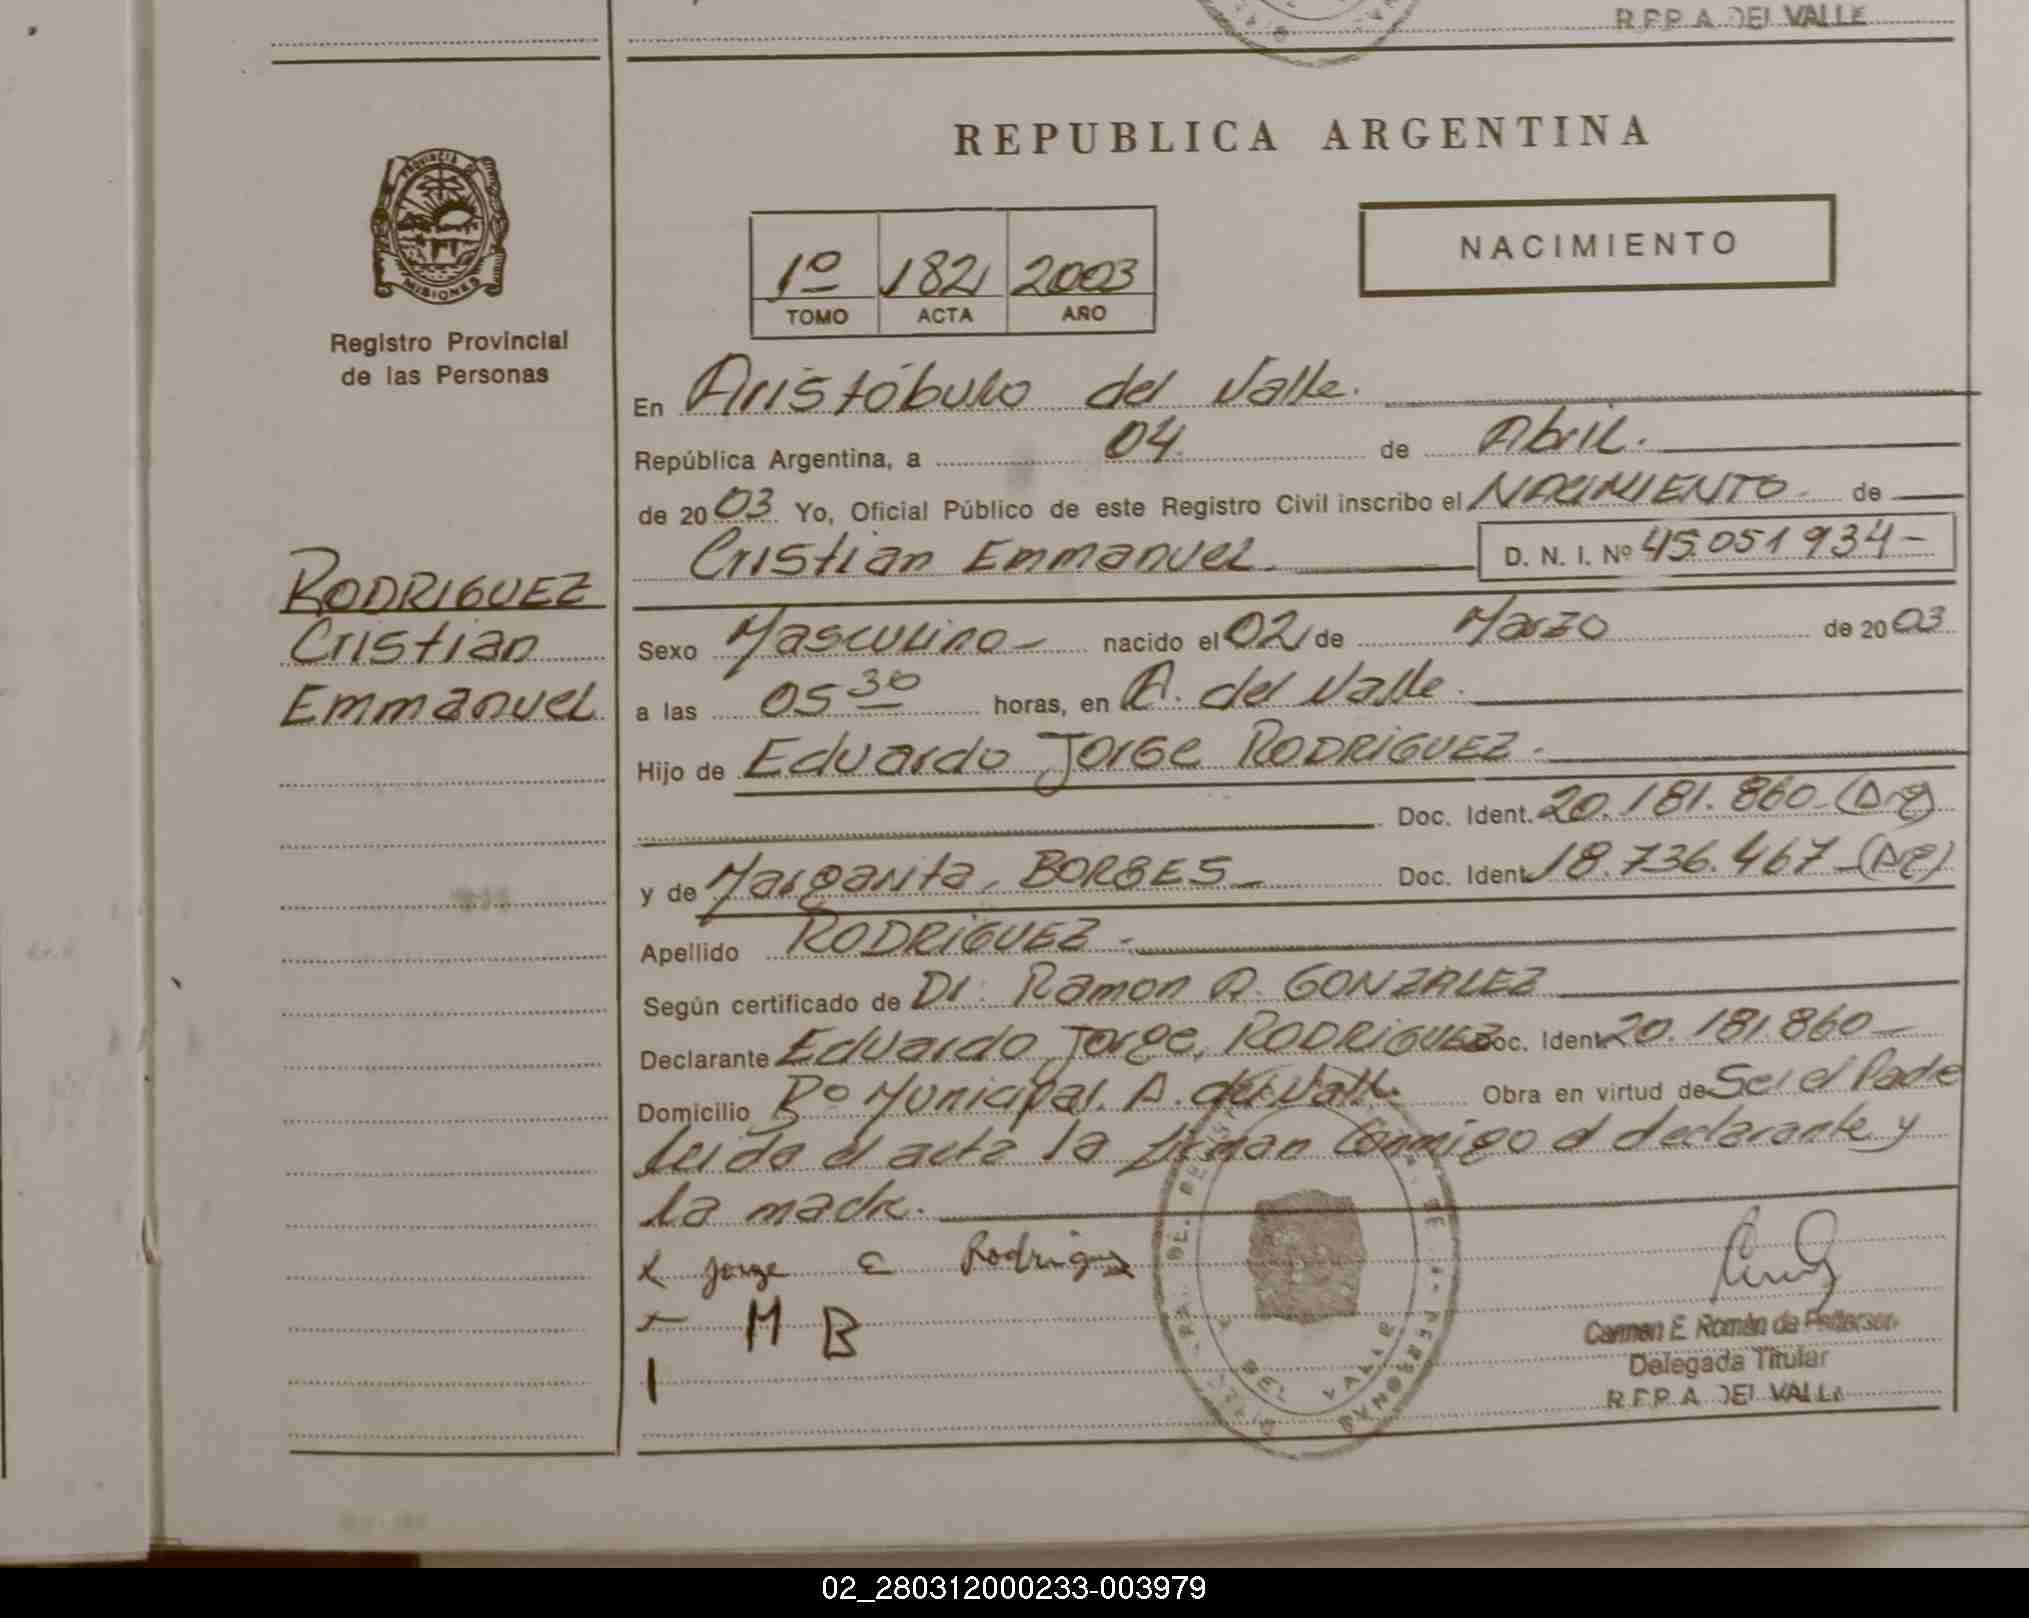 R.F.P. A. DEL VALLE
REPUBLICA ARGENTINA
PROVINCIA DE
MISIONES
Registro Provincial
de las Personas
1º 182 2003
TOMO ACTA AÑO
NACIMIENTO
En Aristóbulo del Valle.
República Argentina, a 04 de Abril.
de 2003 Yo, Oficial Público de este Registro Civil inscribo el NACIMIENTO de
Cristian Emmanuel. D. N. I. Nº 45.051.934-
RODRIGUEZ
Cristian
Emmanuel
Sexo Masculino nacido el 02 de Marzo de 2003
a las 05 30 horas, en A. del Valle.
Hijo de Eduardo Jorge RODRIGUEZ.
Doc. Ident. 20.181.860 (Arg)
y de Margarita, BORGES Doc. Ident. 18.736.467 (Arg)
Apellido RODRIGUEZ
Según certificado de Dr. Ramon A. GONZALEZ
Declarante Eduardo Jorge, RODRIGUEZ Doc. Ident. 20.181.860
Domicilio Bº Municipal. A. del Valle. Obra en virtud de Ser el Padre
leida el acta la firman conmigo el declarante y
la madre.
x Jorge E Rodriguez
M B
Carmen E. Román de Petterson
Delegada Titular
R.F.P. A. DEL VALLE
DEL VALLE
02_280312000233-003979